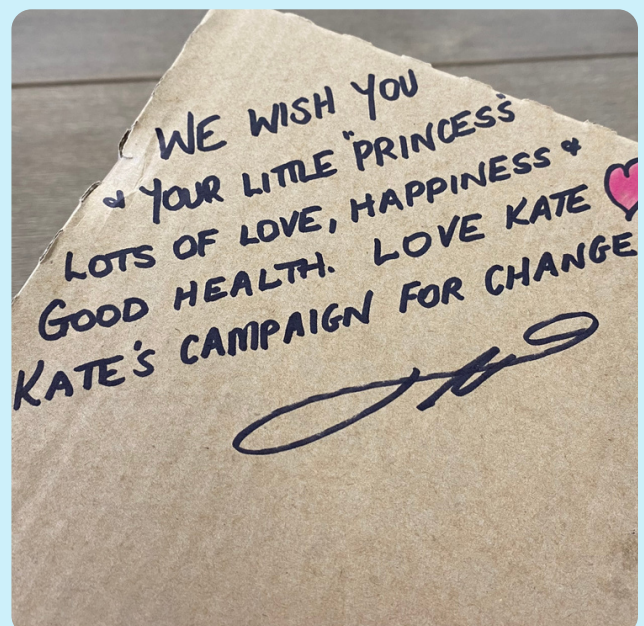 WE WISH YOU
& YOUR LITTLE "PRINCESS"
LOTS OF LOVE, HAPPINESS &
GOOD HEALTH. LOVE KATE
KATE'S CAMPAIGN FOR CHANGE